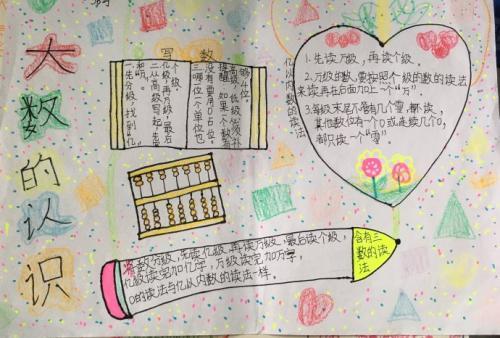 大数的认识
写数
一.先分级,找到“亿”
和“万”。
二.从高级写起,先
亿级,再万级,最后
个级。
三.哪一位上一个单位也
没有,要用0占位。
亿以内数的读法
1.先读万级,再读个级。
2.万级的数,要按照个级的数的读法
来读,再在后面加上一个“万”.
3.每级末尾不管有几个零,都不读,
其他数位有一个0或连续几个0,
都只读一个“零”
将数分级,先读亿级,再读万级,最后读个级,
亿级读完加亿字,万级读完加万字,
0的读法与亿以内数的读法一样。
含有三
数的读
法